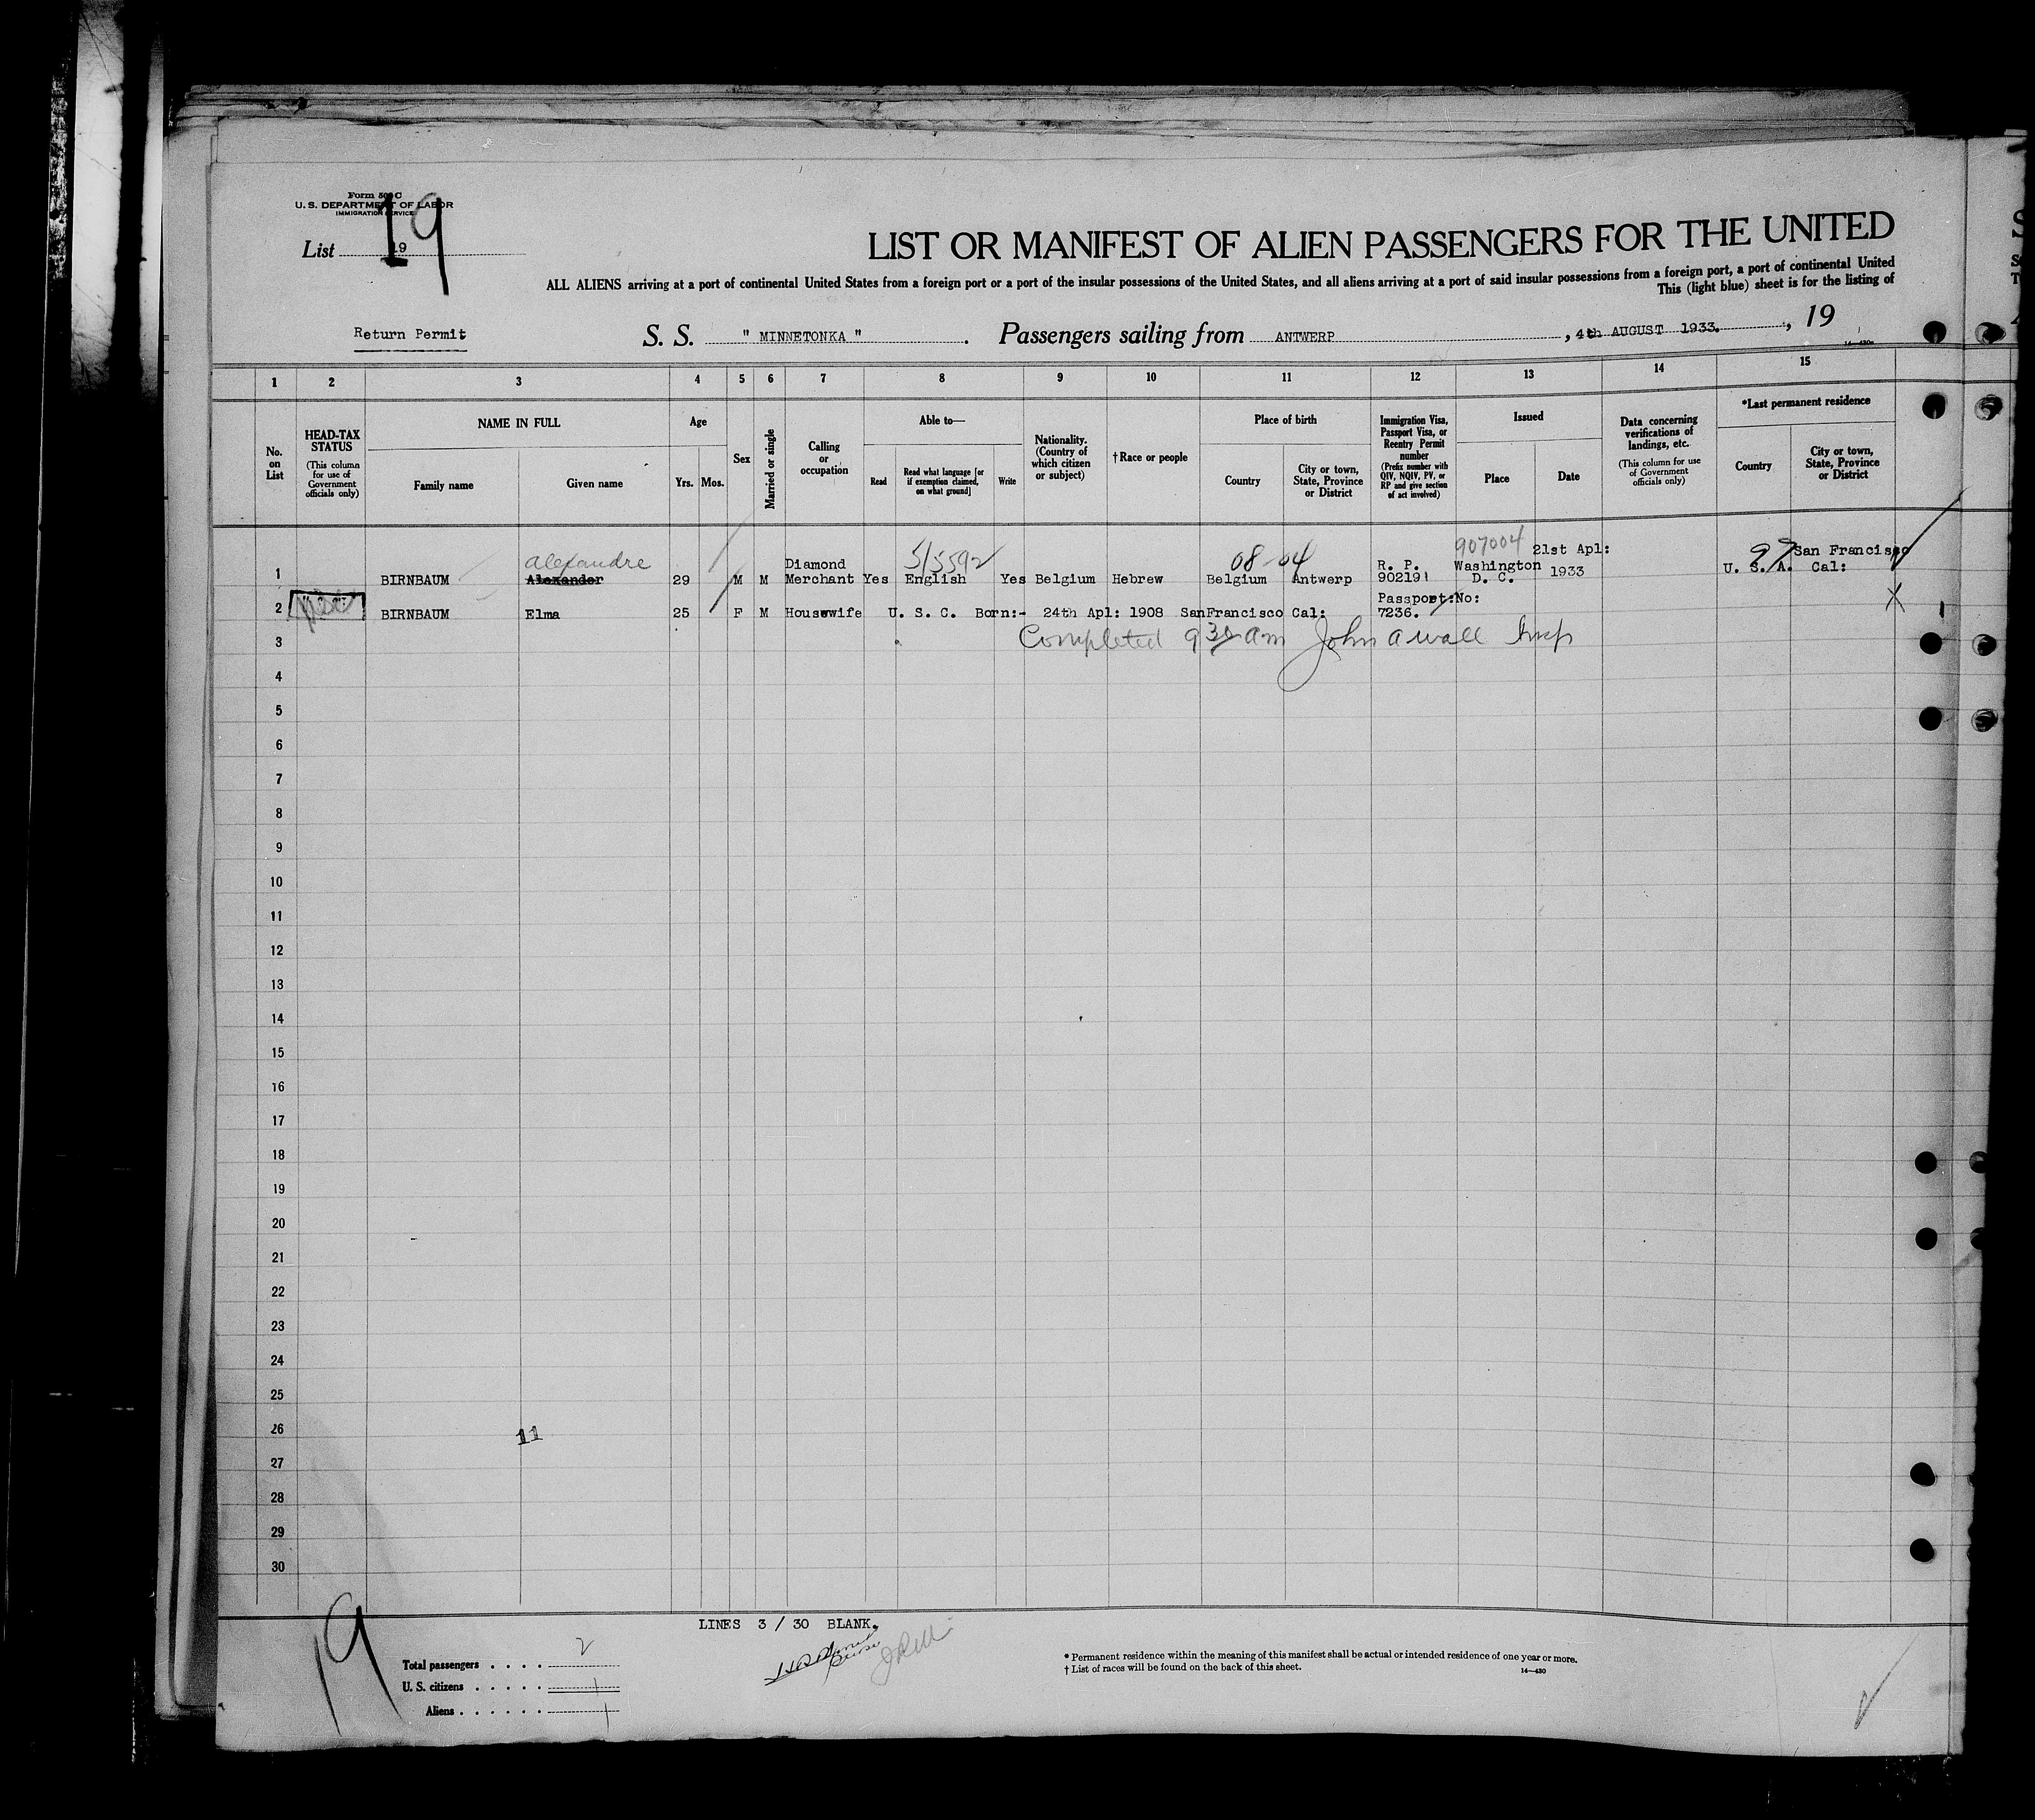 Form 500 C
U. S. DEPARTMENT OF LABOR
IMMIGRATION SERVICE
19
List 19
LIST OR MANIFEST OF ALIEN PASSENGERS FOR THE UNITED
ALL ALIENS arriving at a port of continental United States from a foreign port or a port of the insular possessions of the United States, and all aliens arriving at a port of said insular possessions from a foreign port, a port of continental United
This (light blue) sheet is for the listing of
Return Permit
S. S. " MINNETONKA " . Passengers sailing from ANTWERP , 4th AUGUST 1933. , 19
1 2 3 4 5 6 7 8 9 10 11 12 13 14 15
No. on List
HEAD-TAX STATUS (This column for use of Government officials only)
NAME IN FULL
Family name
Given name
Age
Yrs. Mos.
Sex
Married or single
Calling or occupation
Able to—
Read
Read what language [or if exemption claimed, on what ground]
Write
Nationality. (Country of which citizen or subject)
†Race or people
Place of birth
Country
City or town, State, Province or District
Immigration Visa, Passport Visa, or Reentry Permit number (Prefix number with QIV, NQIV, PV, or RP and give section of act involved)
Issued
Place
Date
Data concerning verifications of landings, etc. (This column for use of Government officials only)
*Last permanent residence
Country
City or town, State, Province or District
1 BIRNBAUM Alexandre Alexander 29 M M Diamond Merchant Yes English 515592 Yes Belgium Hebrew 08-04 Belgium Antwerp R. P. 902191 907004 Washington D. C. 21st Apl: 1933 97 U. S. A. San Francisco Cal:
2 BIRNBAUM Elma 25 F M Housewife U. S. C. Born:- 24th Apl: 1908 SanFrancisco Cal: Passport:No: 7236. X
3 Completed 9 30 am John A Wall Insp
4
5
6
7
8
9
10
11
12
13
14
15
16
17
18
19
20
21
22
23
24
25
26
11
27
28
29
30
LINES 3 / 30 BLANK.
19
Total passengers . . . . 2
U. S. citizens . . . . . 1
Aliens . . . . . . 1
* Permanent residence within the meaning of this manifest shall be actual or intended residence of one year or more.
† List of races will be found on the back of this sheet.
14—430